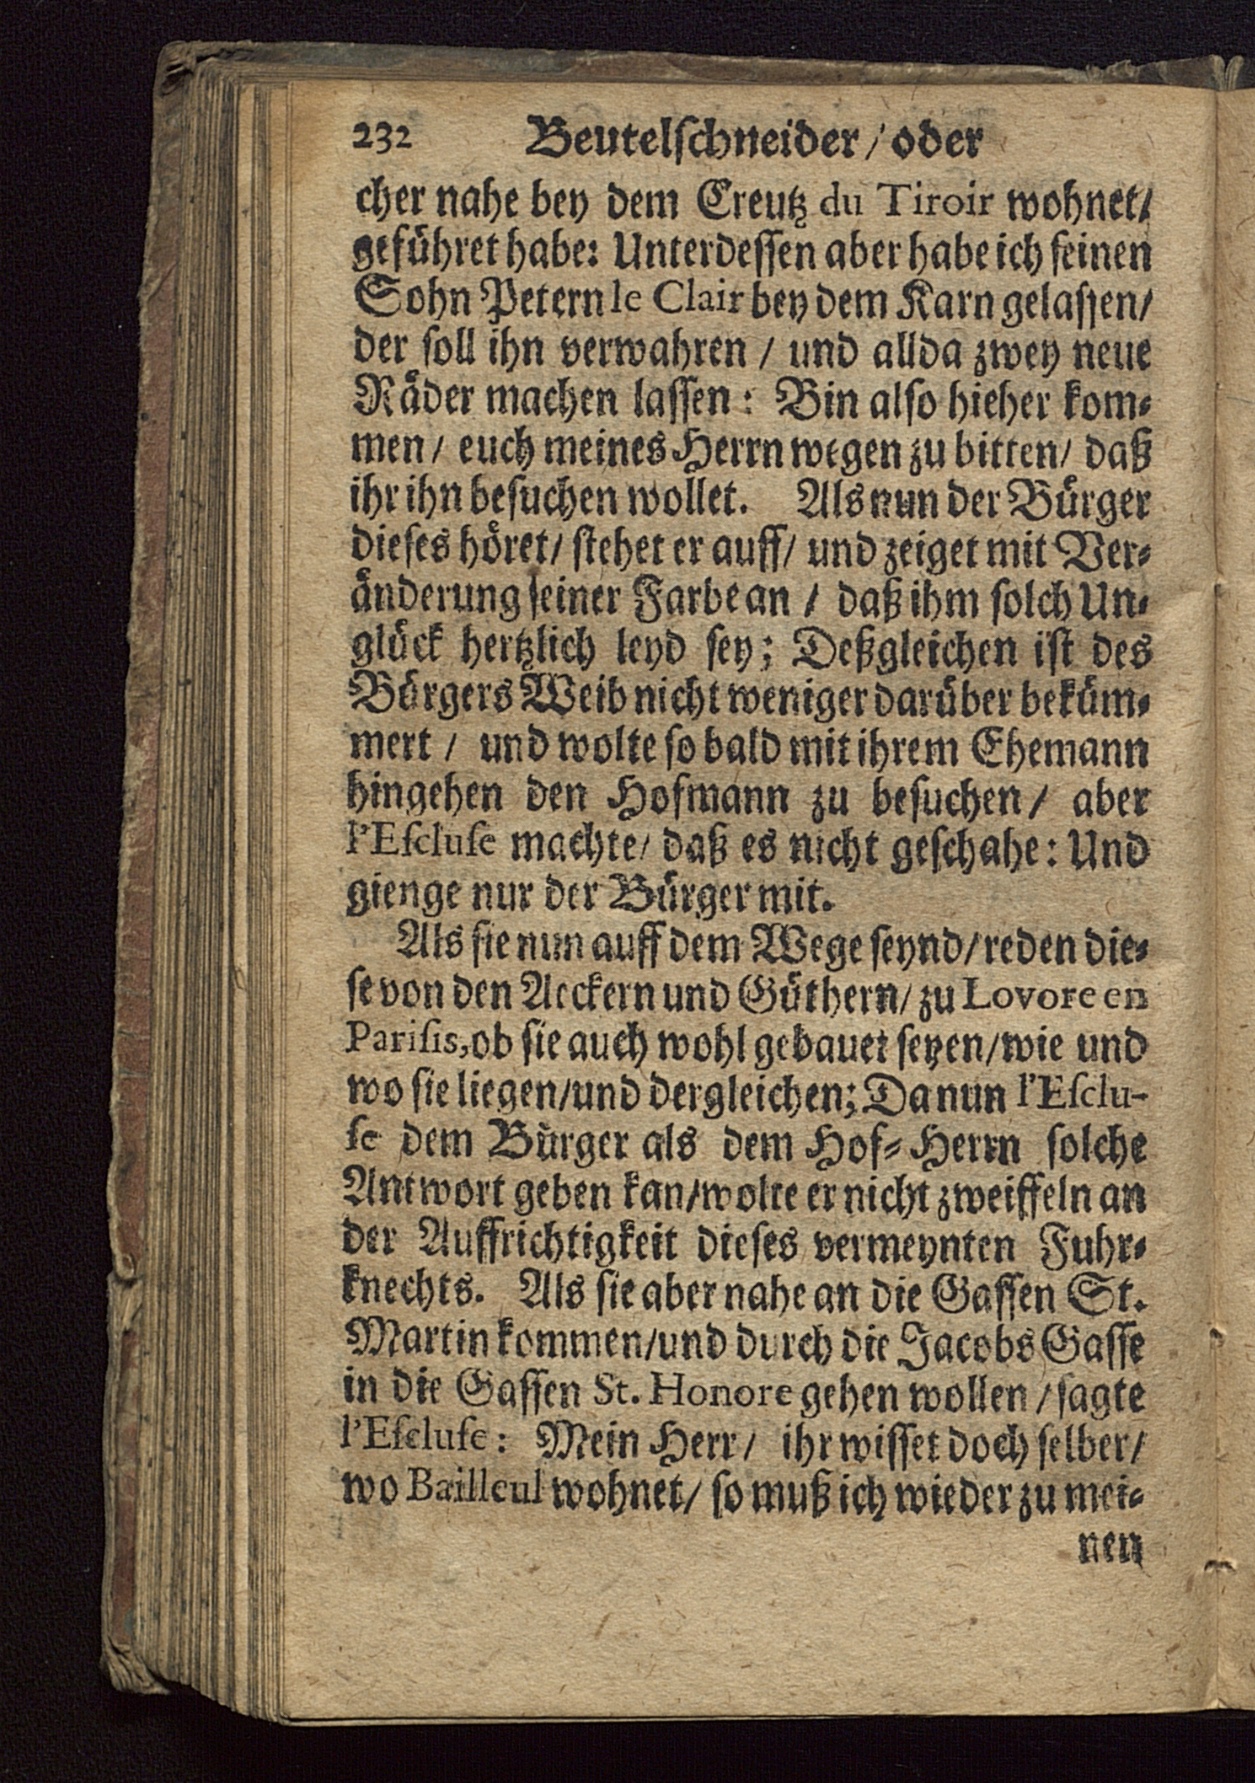 232 Beutelschneider / oder
cher nahe bey dem Creutz du Tiroir wohnet/
geführet habe: Unterdessen aber habe ich seinen
Sohn Petern le Clair bey dem Karn gelassen/
der soll ihn verwahren / und allda zwey neue
Räder machen lassen: Bin also hieher kom-
men / euch meines Herrn wegen zu bitten / daß
ihr ihn besuchen wollet. Als nun der Bürger
dieses höret / stehet er auff / und zeiget mit Ver-
änderung seiner Farbe an / daß ihm solch Un-
glück hertzlich leyd sey; Deßgleichen ist des
Bürgers Weib nicht weniger darüber beküm-
mert / und wolte so bald mit ihrem Ehemann
hingehen den Hofmann zu besuchen / aber
l'Escluse machte / daß es nicht geschahe: Und
gienge nur der Bürger mit.
Als sie nun auff dem Wege seynd / reden die-
se von den Aeckern und Güthern / zu Lovore en
Parisis, ob sie auch wohl gebauet seyen / wie und
wo sie liegen / und dergleichen; Da nun l'Esclu-
se dem Bürger als dem Hof-Herrn solche
Antwort geben kan / wolte er nicht zweiffeln an
der Auffrichtigkeit dieses vermeynten Fuhr-
knechts. Als sie aber nahe an die Gassen St.
Martin kommen / und durch die Jacobs Gasse
in die Gassen St. Honore gehen wollen / sagte
l'Escluse: Mein Herr / ihr wisset doch selber /
wo Bailleul wohnet / so muß ich wieder zu mei-
nen